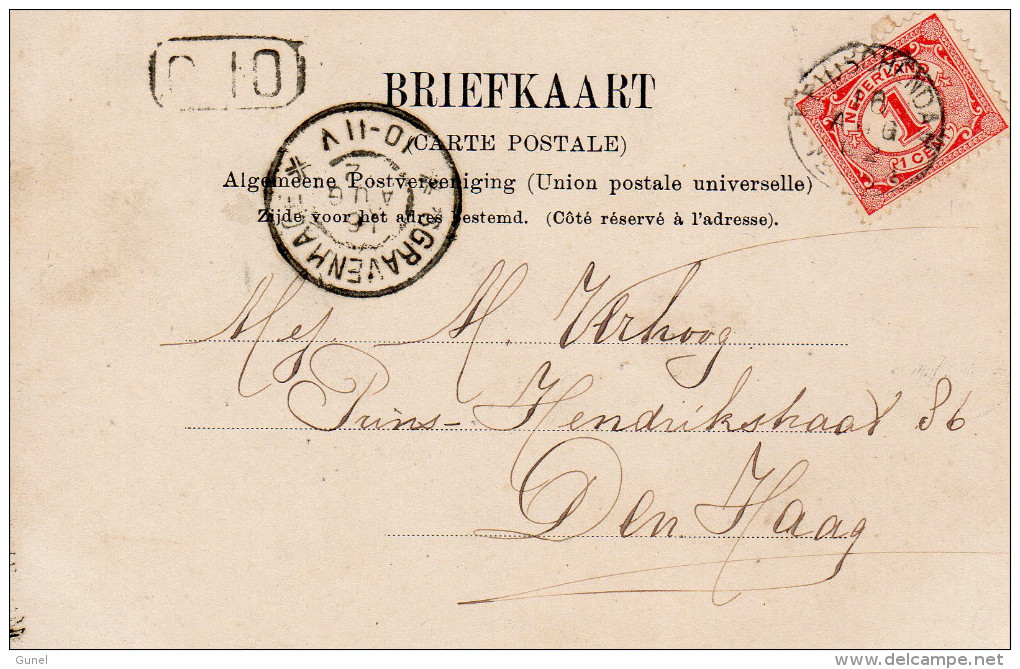 BRIEFKAART
(CARTE POSTALE)
Algemeene Postvereeniging (Union postale universelle)
Zijde voor het adres bestemd. (Côté réservé à l'adresse).
NEDERLAND
1
1 CENT
'SGRAVENHAGE
16
AUG
2
10-11V
Mej. M. Verhoog
Prins-Hendrikstraat 86
Den Haag
Gunel
www.delcampe.net